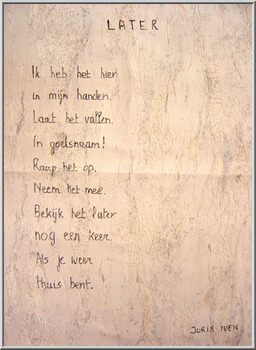 LATER
Ik heb het hier
in mijn handen.
Laat het vallen.
In godsnaam!
Raap het op.
Neem het mee.
Bekijk het later
nog een keer.
Als je weer
thuis bent.
JORIS IVEN